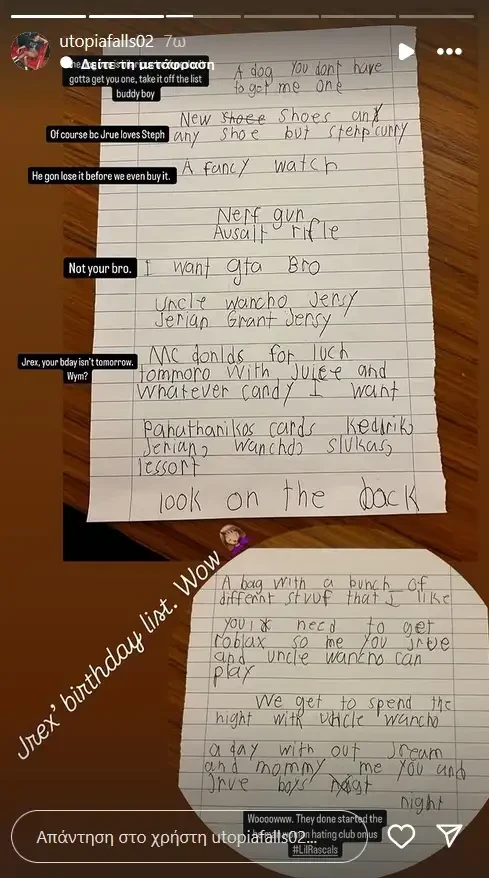 utopiafalls02 7ω
Δείτε τη μετάφραση
gotta get you one, take it off the list
buddy boy
A dog you dont have
to get me one
Of course bc Jrue loves Steph
New shoee shoes and
any shoe but stehp curry
He gon lose it before we even buy it.
A fancy watch
Nerf gun
Ausalt rifle
Not your bro.
I want gta Bro
uncle wancho Jersy
Jerian Grant Jersy
Jrex, your bday isn't tomorrow.
Wym?
MC donlds for luch
tommoro with juice and
whatever candy I want
Panathanikos cards keddrik,
Jerian, wancho, slukas,
lessort
look on the back
Jrex' birthday list. Wow
A bag with a bunch of
differnt stvuf that I like
you need to get
roblax so me you Jrue
and uncle wancho can
play
We get to spend the
night with uncle wancho
a day with out Jream
and mommy me you and
Jrue boys
night
Woooowww. They done started the
hating club on us
#LilRascals
Απάντηση στο χρήστη utopiafalls02...